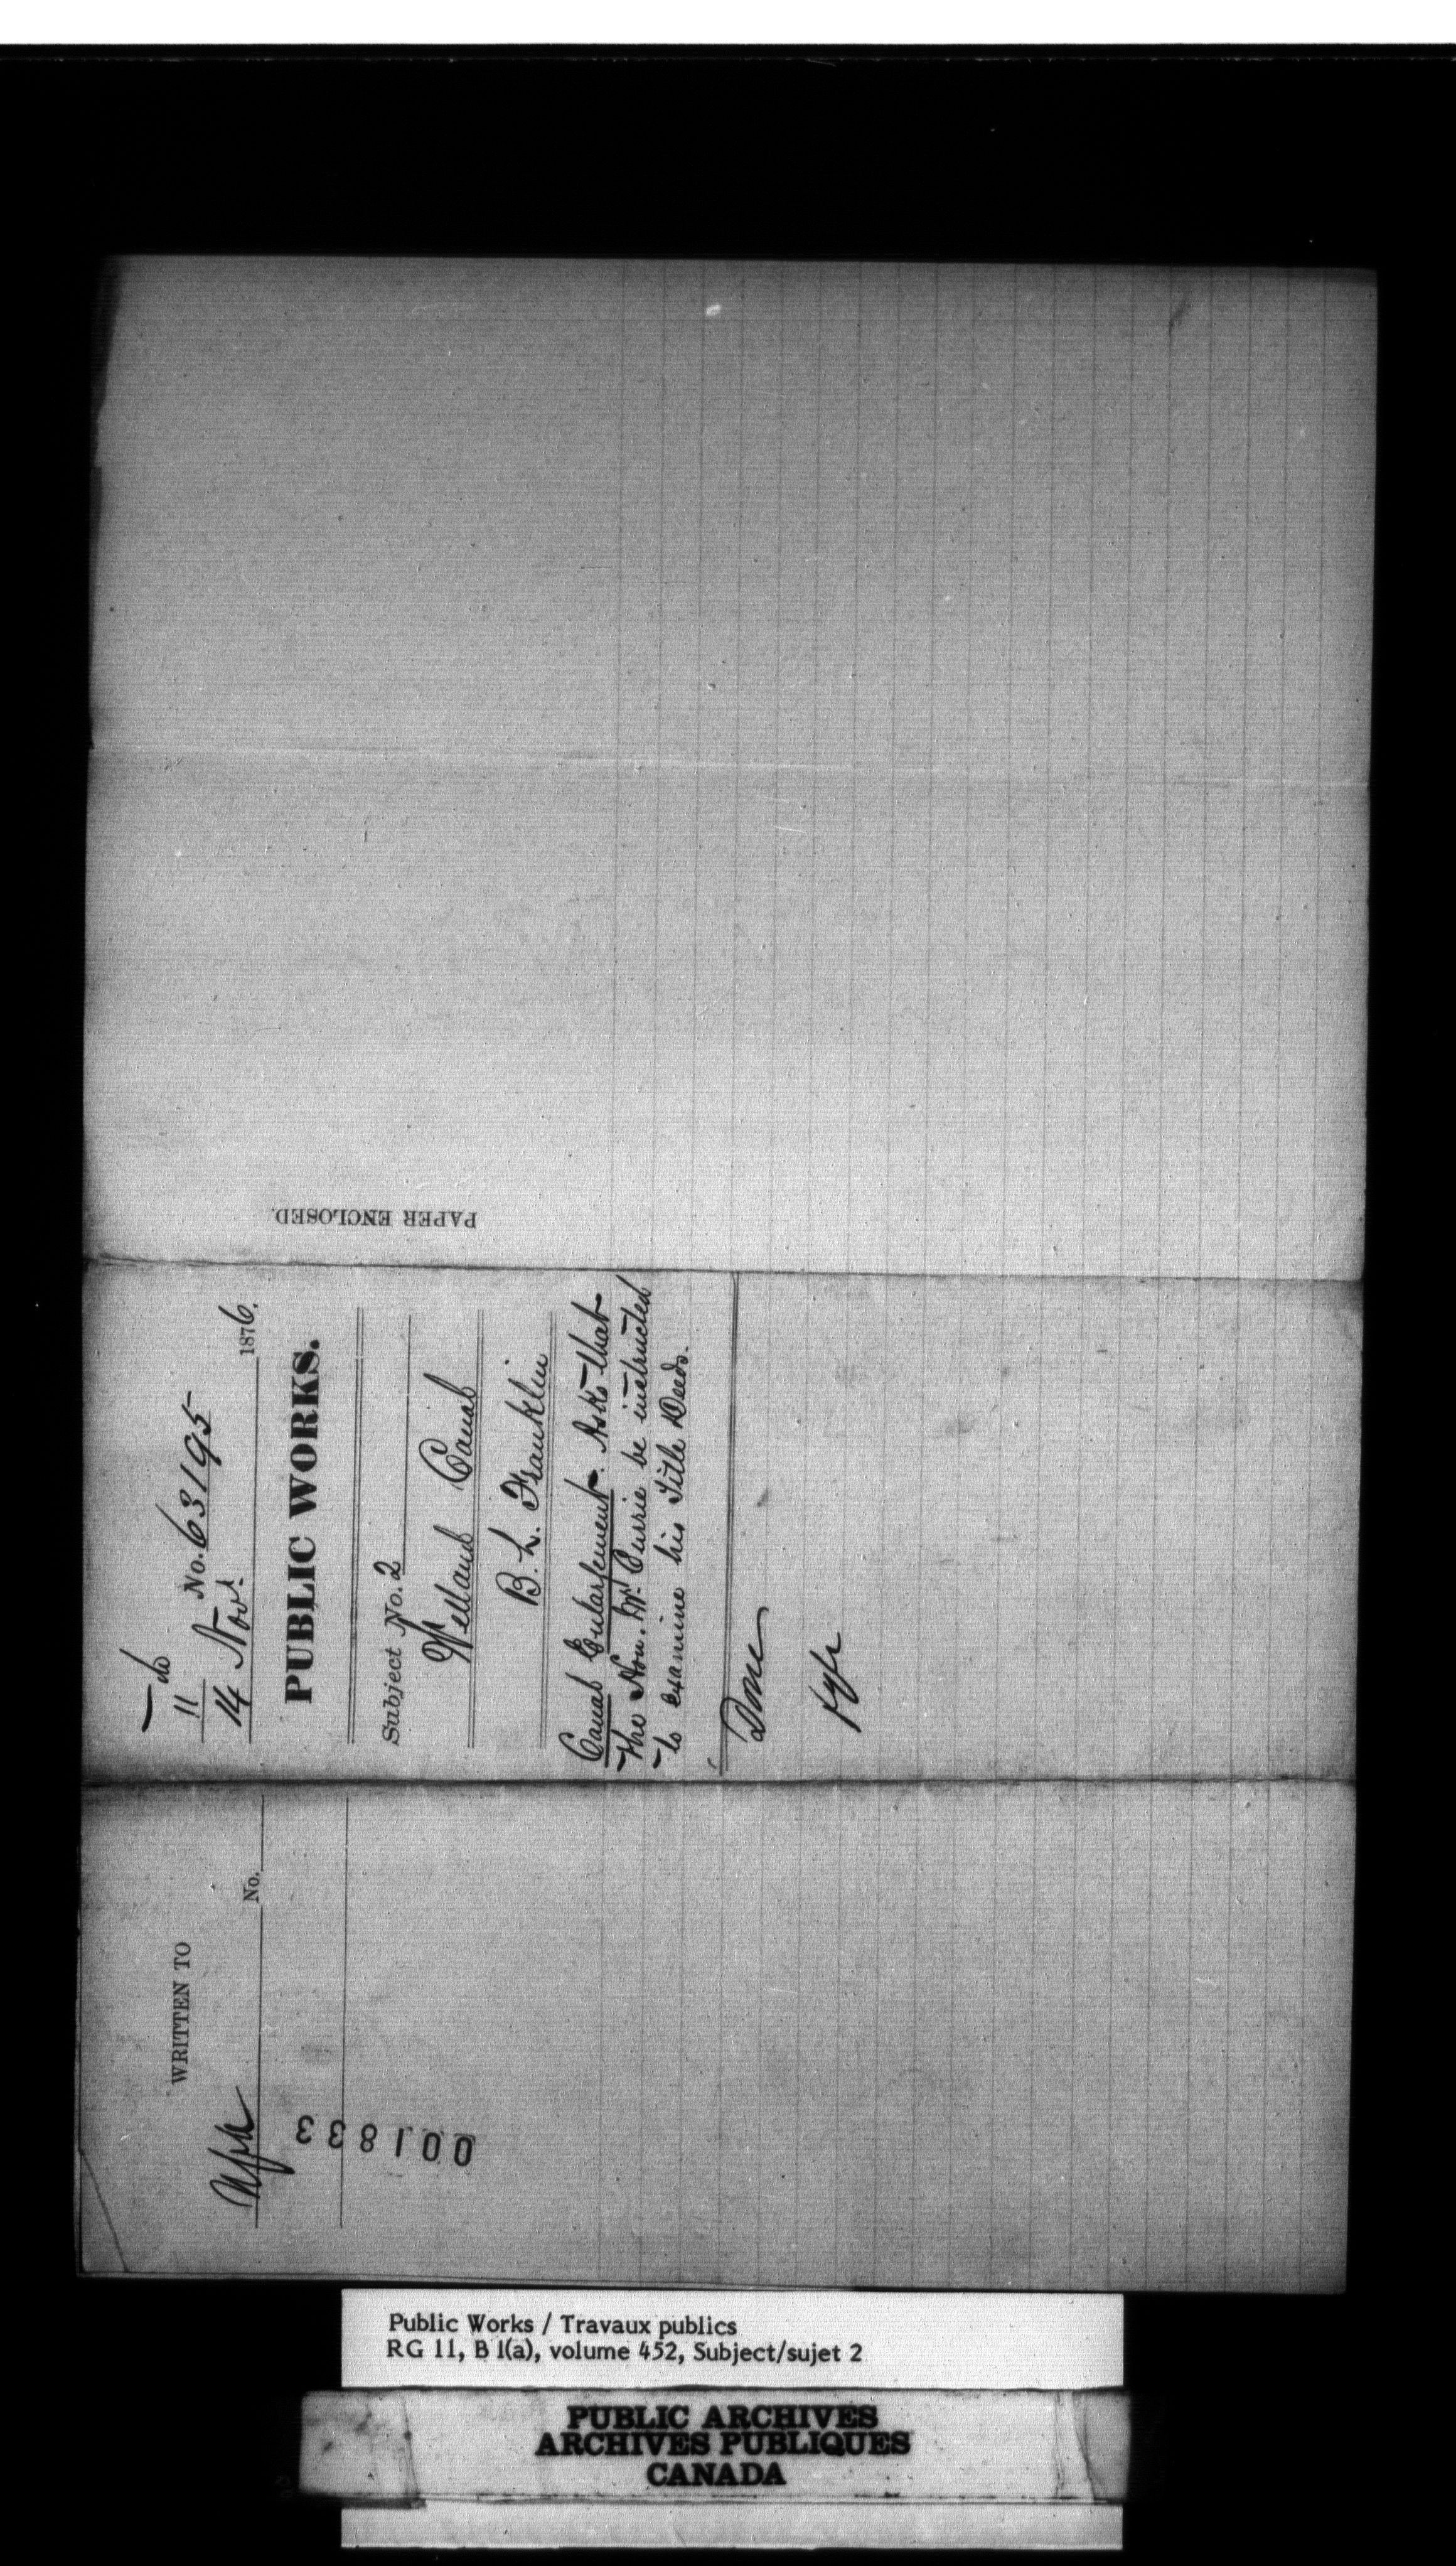 PAPER ENCLOSED.
No. 63195
11
14 Novr. 1876.
PUBLIC WORKS.
Subject No. 2
Welland Canal
B. L. Franklin
Canal Enlargement. Asks that
the Hon. Mr. Currie be instructed
to examine his Title Deeds.
Done
WRITTEN TO
No.
001833
Public Works / Travaux publics
RG 11, B 1(a), volume 452, Subject/sujet 2
PUBLIC ARCHIVES
ARCHIVES PUBLIQUES
CANADA